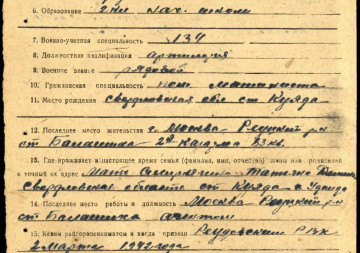 6. Образование 2 кл. нач. школы
7. Военно-учетная специальность 134
8. Должностная квалификация артиллерия
9. Военное звание рядовой
10. Гражданская специальность пом. машиниста
11. Место рождения Свердловская обл ст Кузяда
12. Последнее место жительства г. Москва Реуцкий р-н
ст Балашиха 2й 13 кв.
13. Где проживает в настоящее время семья (фамилия, имя, отчество) жены или родителей
и точный их адрес Мать Татьяна
Свердловская область ст Кузяда
14. Последнее место работы и должность Москва Реуцкий р-н
ст Балашиха агентом
15. Каким райгорвоенкоматом и когда призван Реутовским РВК
2 марта 1942 года